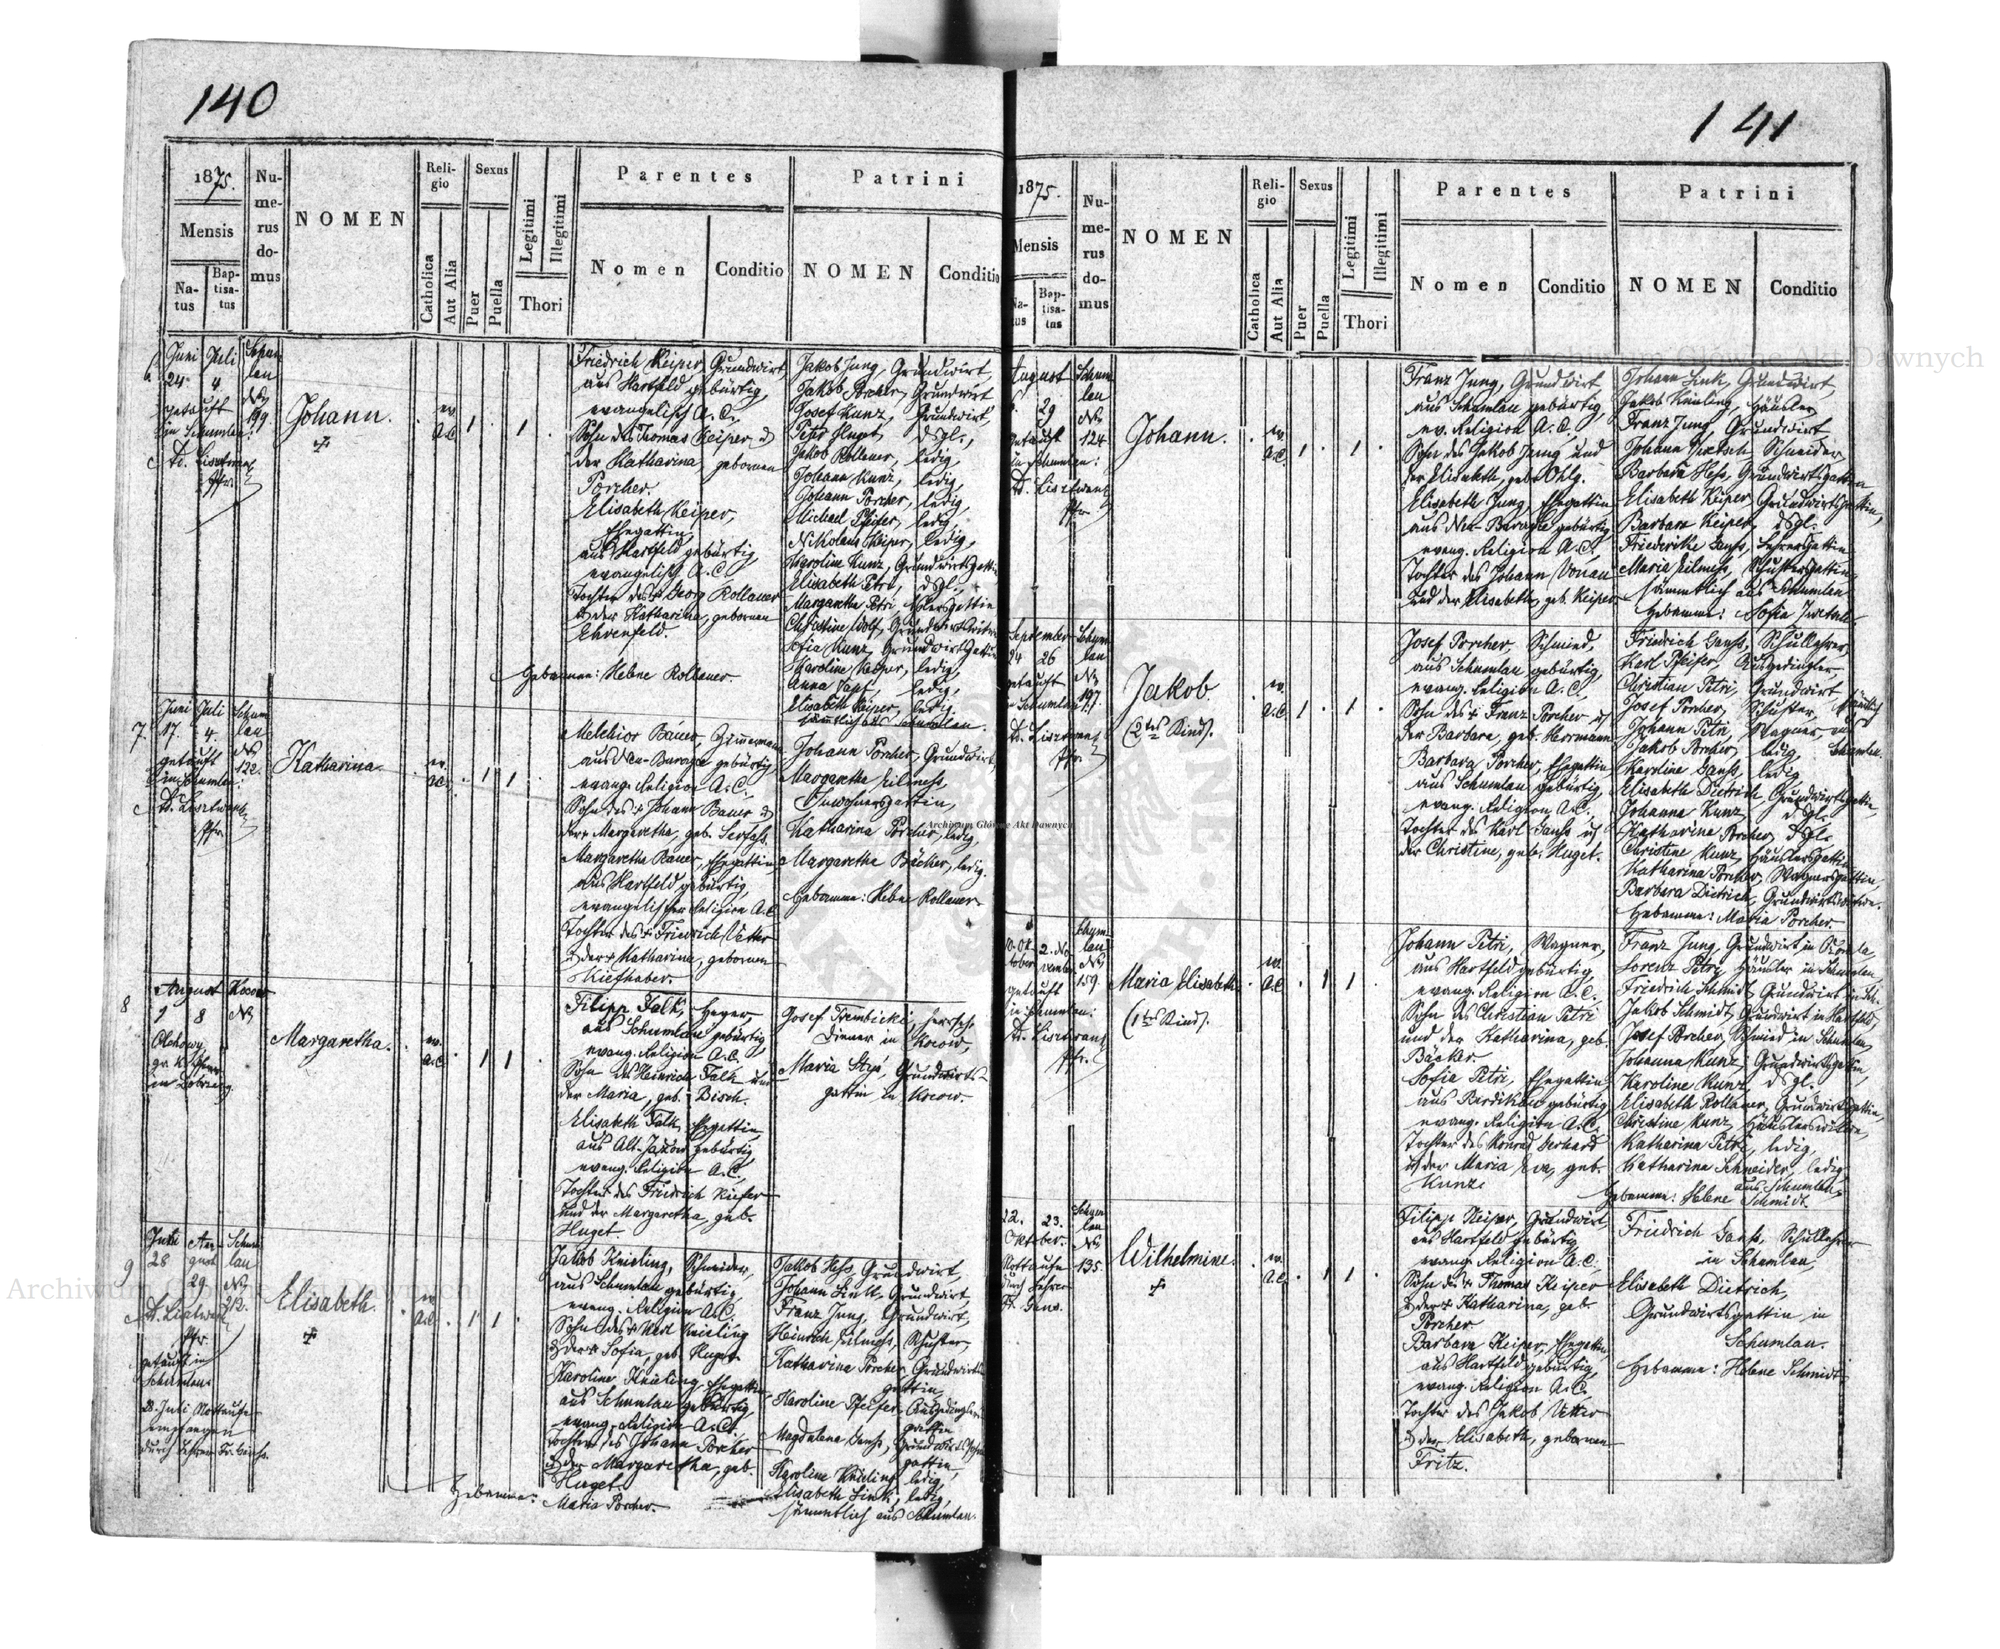 140
1875.
Mensis
Na-
tus
Bap-
tisa-
tus
Nu-
me-
rus
do-
mus
NOMEN
Reli-
gio
Catholica
Aut Alia
Sexus
Puer
Puella
Legitimi
Illegitimi
Thori
Parentes
Nomen
Conditio
Patrini
NOMEN
Conditio
6.
Juni Juli
24. 4
getauft
in Schumlau.
No
199
Johann.
ev.
A.C.
1
1
Friedrich Keiper, Grundwirt,
aus Hartfeld gebürtig,
evangelisch A.C.,
Sohn des Thomas Keiper u
der Katharina, gebornen
Porcher.
Elisabeth Keiper,
Ehegattin,
aus Hartfeld gebürtig,
evangelisch A.C.
Tochter des + Georg Rollauer
u der Katharina, gebornen
Ehrenfeld.
Hebamme: Helene Rollauer.
Jakob Jung, Grundwirt,
Jakob Porcher, Grundwirt
Josef Kunz, Grundwirt,
Peter Huget, dsgl.,
Jakob Rollauer, ledig,
Johann Kunz, ledig,
Johann Porcher, ledig,
Michael Pfeifer, ledig,
Nikolaus Keiper, ledig,
Karoline Kunz, Grundwirtsgattin
Elisabeth Petri, dsgl.,
Margaretha Petri,
Christine Wolf,
Sofia Kunz, Grundwirtsgattin
Karoline Keiper, ledig,
Anna ledig,
Elisabeth Keiper, ledig.
sämmtlich aus Schumlau.
7.
Juni Juli
17. 4.
getauft
in Schumlau.
No
122.
Katharina.
ev.
A.C.
1
1
Melchior Bauer, Zimmermann
aus Neu-Burage gebürtig,
evang. Religion A.C.,
Sohn des + Johann Bauer u
der + Margaretha, geb.
Margaretha Bauer, Ehegattin,
aus Hartfeld gebürtig,
evangelischer Religion A.C.
Tochter des + Friedrich Vetter
u der + Katharina, gebornen
Kiefhaber.
Johann Porcher, Grundwirt,
Margaretha Eilmess,
Inwohnersgattin,
Katharina Porcher, ledig,
Margaretha Bäcker, ledig.
Hebamme: Helene Rollauer.
8
August
1 8
Kocow
No
Margaretha.
ev.
A.C.
1
1
Filipp Falk, Heger,
aus Schumlau gebürtig,
evang. Religion A.C.,
Sohn des Heinrich Falk und
der Maria, geb. Bisch.
Elisabeth Falk, Ehegattin,
aus Alt-Jazow gebürtig,
evang. Religion A.C.,
Tochter des Friedrich Kiefer
und der Margaretha, geb.
Huget.
Josef Trembicki, herrsch.
Diener in Kocow,
Maria Styś, Grundwirts-
gattin in Kocow.
9
28
29.
No
212.
getauft in
Schumlau
28. Juli Nottaufe
empfangen
durch Lehrer Fr. Ganss.
Elisabeth.
ev.
A.C.
1
1
Jakob Knieling, Schneider,
aus Schumlau gebürtig,
evang. Religion A.C.,
Sohn des + Karl Knieling
u der + Sofia, geb. Huget.
Karoline Knieling, Ehegattin,
aus Schumlau gebürtig,
evang. Religion A.C.,
Tochter des Johann Porcher
u der Margaretha, geb.
Huget.
Hebamme: Maria Porcher.
Jakob Hess, Grundwirt,
Johann Link, Grundwirt,
Franz Jung, Grundwirt,
Heinrich Eilmess, Schuster,
Katharina Porcher, Grundwirts-
gattin,
Karoline Pfeifer,
gattin
Magdalena Ganss,
gattin,
Karoline Knieling, ledig,
Elisabeth Link, ledig,
sämmtlich aus Schumlau.
141
1875.
Mensis
Na-
tus
Bap-
tisa-
tus
Nu-
me-
rus
do-
mus
NOMEN
Reli-
gio
Catholica
Aut Alia
Sexus
Puer
Puella
Legitimi
Illegitimi
Thori
Parentes
Nomen
Conditio
Patrini
NOMEN
Conditio
August
29
No
124.
getauft
in Schumlau:
Johann.
ev.
A.C.
1
1
Franz Jung, Grundwirt
aus Schumlau gebürtig,
ev. Religion A.C.,
Sohn des Jakob Jung und
der Elisabeth, geb. Ohlg.
Elisabeth Jung, Ehegattin
aus Neu-Burage gebürtig,
evang. Religion A.C.,
Tochter des Johann Vonau
und der Elisabeth, geb. Keiper
Johann Link, Grundwirt,
Jakob Knieling, Häusler
Franz Jung, Grundwirt
Johann Schneider,
Barbara Hess, Grundwirtsgattin
Elisabeth Keiper, Grundwirtsgattin,
Barbara Keiper, dsgl.
Friederike Ganss, Lehrersgattin
Maria Eilmess, Schustersgattin
sämmtlich aus Schumlau
Hebamme: Sofia
September
24 26
getauft
in Schumlau
No
197.
Jakob.
(2tes Kind).
ev.
A.C.
1
1
Josef Porcher, Schmied,
aus Schumlau gebürtig,
evang. Religion A.C.
Sohn des + Franz Porcher u
der Barbara, geb. Herrmann
Barbara Porcher, Ehegattin
aus Schumlau gebürtig,
evang. Religion A.C.,
Tochter des Karl Ganss u
der Christine, geb. Huget.
Friedrich Ganss, Schullehrer,
Karl Pfeifer, Ausgedingler,
Christian Petri, Grundwirt,
Josef Porcher, Schuster,
Johann Petri, Wagner,
Jakob Porcher, ledig,
Karoline Ganss, ledig
sämmtlich
aus
Schumlau.
Elisabeth Dietrich, Grundwirtsgattin,
Johanna Kunz, dsgl.
Katharina Porcher, dsgl.
Christine Kunz, Häuslersgattin
Katharina Porcher, Wagnersgattin,
Barbara Dietrich, Grundwirtswitwe.
Hebamme: Maria Porcher
2. No
vember
No
159.
getauft
in Schumlau:
Maria Elisabeth.
(1tes Kind).
ev.
A.C.
1
1
Johann Petri, Wagner,
aus Hartfeld gebürtig,
evang. Religion A.C.,
Sohn des Christian Petri
und der Katharina, geb.
Bäcker.
Sofia Petri, Ehegattin
aus Berdikau gebürtig
evang. Religion A.C.
Tochter des Konrad Gerhard
u der Maria Eva, geb.
Kunz.
Franz Jung, Grundwirt in
Lorenz Petri, Häusler in Schumlau,
Friedrich Schmidt, Grundwirt in Sch.
Jakob Schmidt, Grundwirt in Hartfeld,
Josef Porcher, Schmied in Schumlau,
Johanna Kunz, Grundwirtsgattin,
Karoline Kunz, dsgl.
Elisabeth Rollauer, Grundwirtsgattin,
Christine Kunz, Häuslerswitwe,
Katharina Petri, ledig,
Katharina Schneider, ledig,
aus Schumlau.
Hebamme: Helene Schmidt.
22. 23.
Oktober.
No
135.
Nottaufe
durch Lehrer
Fr. Ganss.
Wilhelmine.
ev.
A.C.
1
1
Filipp Keiper, Grundwirt,
aus Hartfeld gebürtig
evang. Religion A.C.,
Sohn des + Thomas Keiper
u der + Katharina, geb.
Porcher
Barbara Keiper, Ehegattin,
aus Hartfeld gebürtig,
evang. Religion A.C.,
Tochter des Jakob Vetter
u der Elisabeth, gebornen
Fritz.
Friedrich Ganss, Schullehrer
in Schumlau,
Elisabeth Dietrich,
Grundwirtsgattin in
Schumlau.
Hebamme: Helene Schmidt
Archiwum Główne Akt Dawnych
Archiwum Główne Akt Dawnych
Archiwum Główne Akt Dawnych